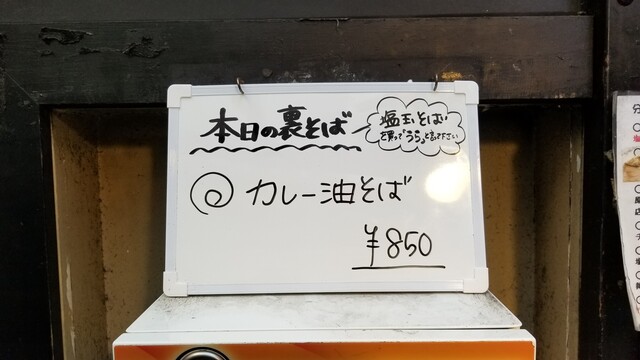 本日の裏そば
塩玉そば
を買って「うら」と言って下さい
カレー油そば
¥850